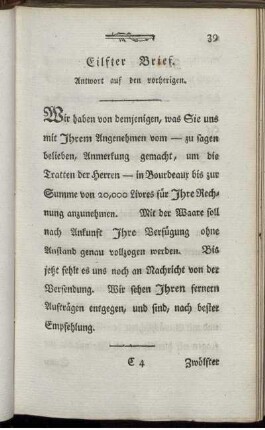 39
Eilfter Brief.
Antwort auf den vorherigen.
Wir haben von demjenigen, was Sie uns
mit Ihrem Angenehmen vom — zu sagen
belieben, Anmerkung gemacht, um die
Tratten der Herren — in Bourdeaux bis zur
Summe von 20,000 Livres für Ihre Rech-
nung anzunehmen. Mit der Waare soll
nach Ankunft Ihre Verfügung ohne
Anstand genau vollzogen werden. Bis
jetzt fehlt es uns noch an Nachricht von der
Versendung. Wir sehen Ihren fernern
Aufträgen entgegen, und sind, nach bester
Empfehlung.
C 4 Zwölfter